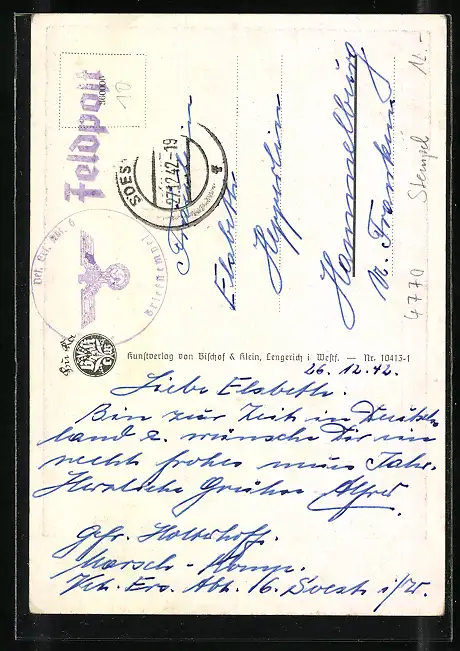 Feldpost
10
SOEST
27.12.42-19
Fräulein
Elsbeth
Hammelburg
M. Franken
Stempel 12.-
4770
Kunstverlag von Bischof & Klein, Lengerich i. Westf. — Nr. 10413-1
26.12.42.
Liebe Elsbeth.
Bin zur Zeit in Deutsch-
land u. wünsche Dir ein
recht frohes neues Jahr.
Herzliche Grüße Alfred.
Gfr. Holterhoff.
Marsch-Komp.
Ers. Abt. 6. Soest i/W.